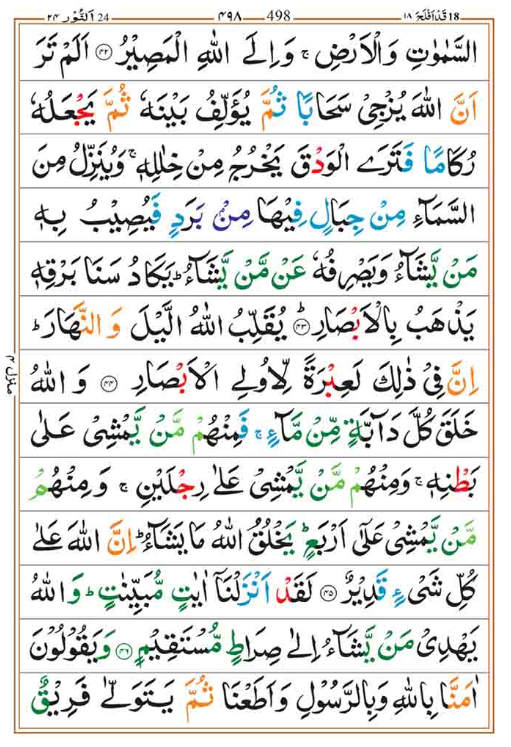 18 قَدْاَفْلَحَ ١٨ 498 ٤٩٨ 24 اَلنُّوْر ٢٤
السَّمٰوٰتِ وَالْاَرْضِ ۚ وَاِلَى اللّٰهِ الْمَصِيْرُ ﴿۴۲﴾ اَلَمْ تَرَ
اَنَّ اللّٰهَ يُزْجِىْ سَحَابًا ثُمَّ يُؤَلِّفُ بَيْنَهٗ ثُمَّ يَجْعَلُهٗ
رُكَامًا فَتَرَى الْوَدْقَ يَخْرُجُ مِنْ خِلٰلِهٖ ۚ وَيُنَزِّلُ مِنَ
السَّمَآءِ مِنْ جِبَالٍ فِيْهَا مِنْۢ بَرَدٍ فَيُصِيْبُ بِهٖ
مَنْ يَّشَآءُ وَيَصْرِفُهٗ عَنْ مَّنْ يَّشَآءُ ؕ يَكَادُ سَنَا بَرْقِهٖ
يَذْهَبُ بِالْاَبْصَارِ ؕ ﴿۴۳﴾ يُقَلِّبُ اللّٰهُ الَّيْلَ وَ النَّهَارَ ؕ
اِنَّ فِىْ ذٰلِكَ لَعِبْرَةً لِّاُولِى الْاَبْصَارِ ﴿۴۴﴾ وَ اللّٰهُ
خَلَقَ كُلَّ دَآبَّةٍ مِّنْ مَّآءٍ ۚ فَمِنْهُمْ مَّنْ يَّمْشِىْ عَلٰى
بَطْنِهٖ ۚ وَمِنْهُمْ مَّنْ يَّمْشِىْ عَلٰى رِجْلَيْنِ ۚ وَ مِنْهُمْ
مَّنْ يَّمْشِىْ عَلٰٓى اَرْبَعٍ ؕ يَخْلُقُ اللّٰهُ مَا يَشَآءُ ؕ اِنَّ اللّٰهَ عَلٰى
كُلِّ شَىْءٍ قَدِيْرٌ ﴿۴۵﴾ لَقَدْ اَنْزَلْنَاۤ اٰيٰتٍ مُّبَيِّنٰتٍ ؕ وَ اللّٰهُ
يَهْدِىْ مَنْ يَّشَآءُ اِلٰى صِرَاطٍ مُّسْتَقِيْمٍ ﴿۴۶﴾ وَيَقُوْلُوْنَ
اٰمَنَّا بِاللّٰهِ وَبِالرَّسُوْلِ وَاَطَعْنَا ثُمَّ يَتَوَلّٰى فَرِيْقٌ
منزل ۴